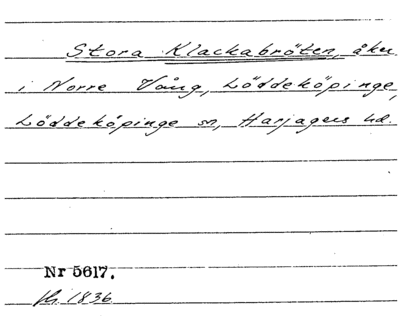 Stora Klackabröten, åker
i Norre Vång, Löddeköpinge,
Löddeköpinge sn, Harjagers hd.
Nr 5617.
1836